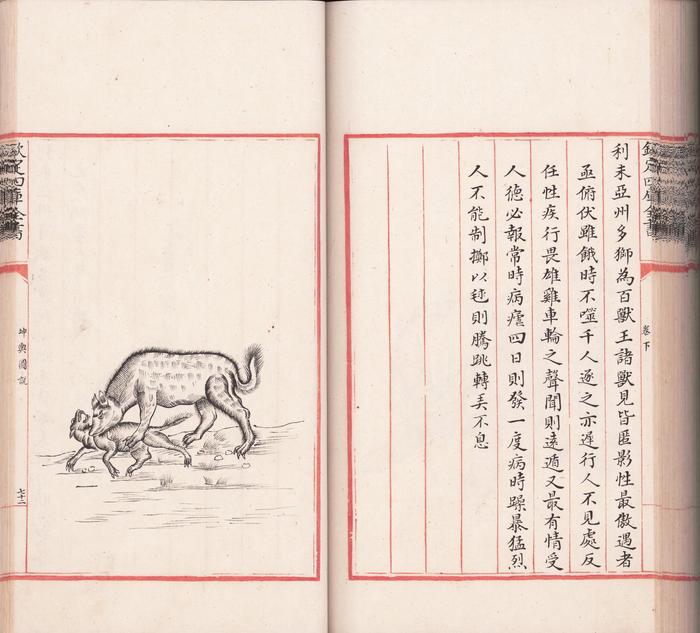 欽定四庫全書
卷下
利未亞州多獅為百獸王諸獸見皆匿影性最傲遇者
亟俯伏雖餓時不噬千人逐之亦遲行人不見處反
任性疾行畏雄雞車輪之聲聞則遠遁又最有情受
人德必報常時病瘧四日則發一度病時躁暴猛烈
人不能制擲以毬則騰跳轉弄不息
欽定四庫全書
坤輿圖說
七十二